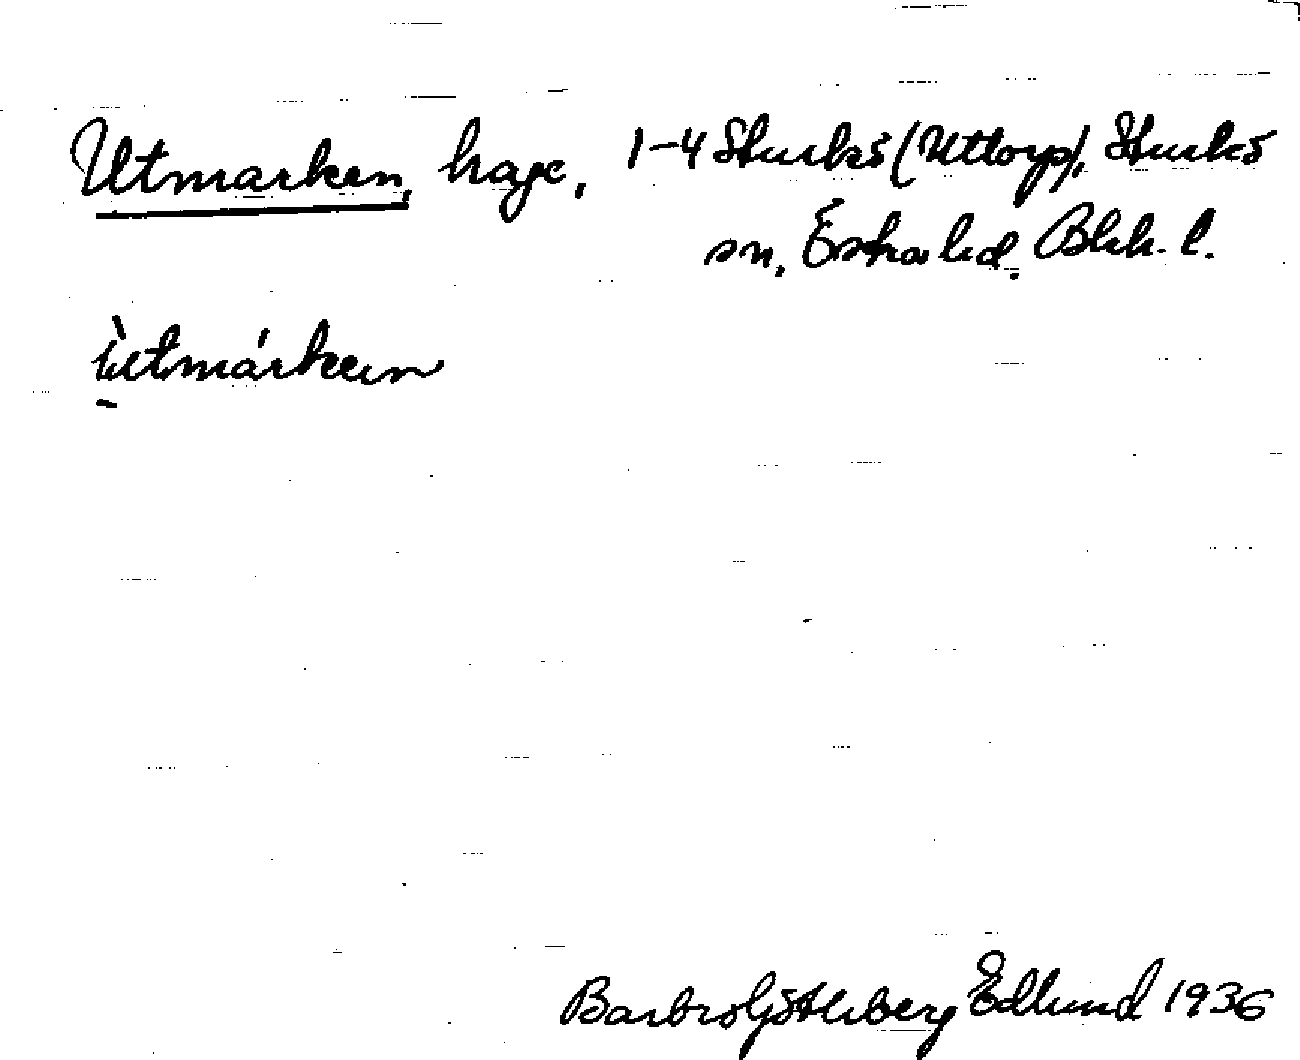 Utmarken, hage, 1-4 Sturkö (Uttorp), Sturkö
sn, Östra hd. Blek. l.
ùtmárken
Barbro Götheberg Edlund 1936